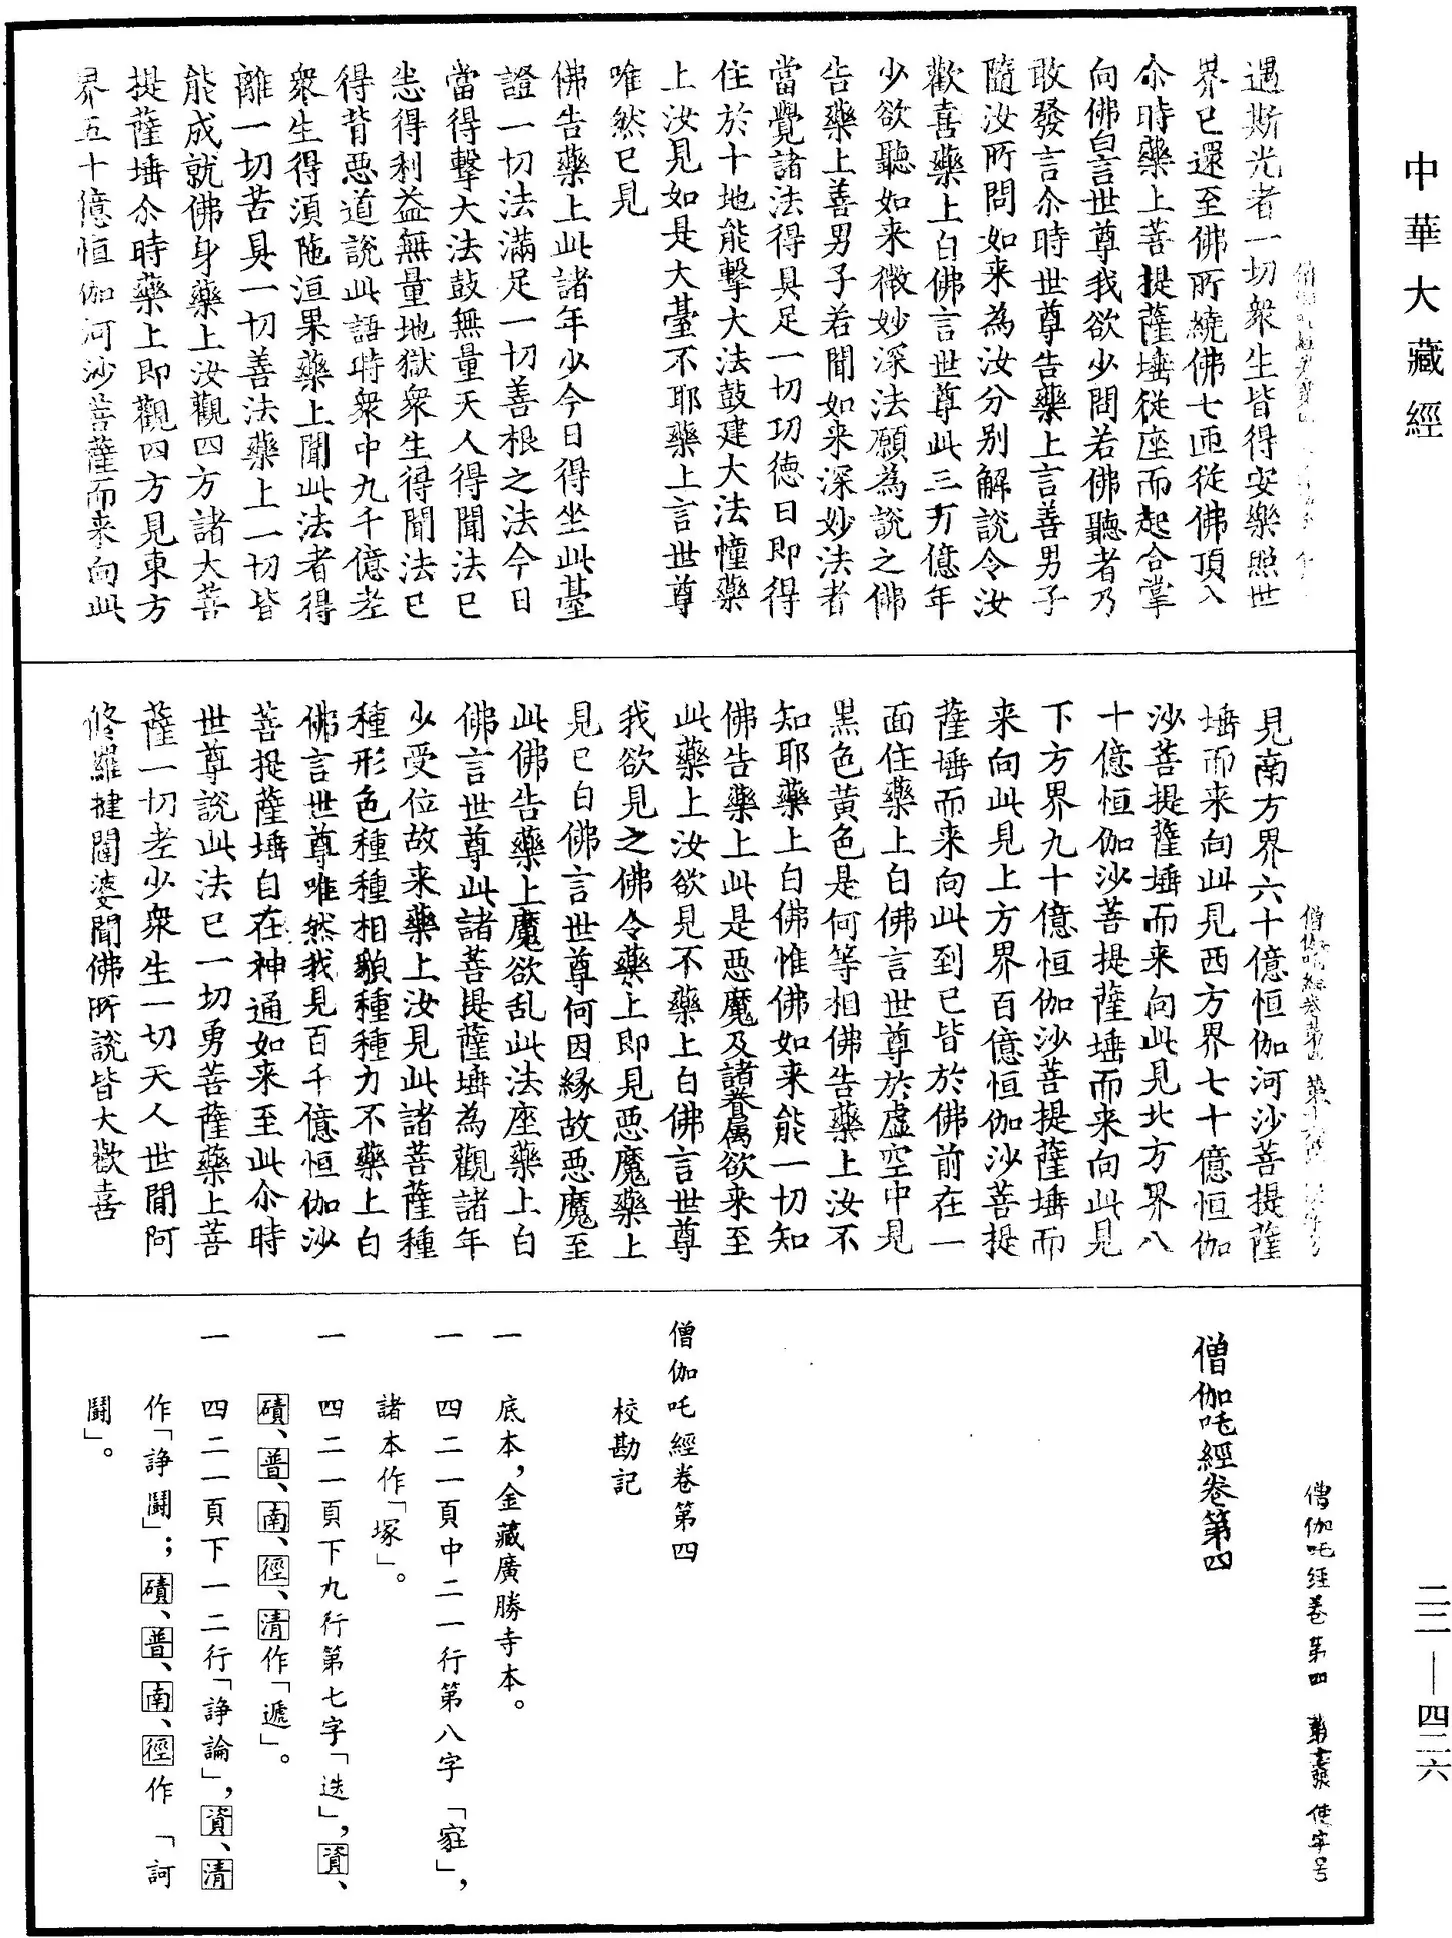 中華大藏經
遇斯光者一切衆生皆得安樂照世
界已還至佛所繞佛七匝從佛頂入
尒時藥上菩提薩埵從座而起合掌
向佛白言世尊我欲少問若佛聽者乃
敢發言尒時世尊告藥上言善男子
隨汝所問如来為汝分別解說令汝
歡喜藥上白佛言世尊此三万億年
少欲聽如来微妙深法願為說之佛
告藥上善男子若聞如来深妙法者
當覺諸法得具足一切功徳日即得
住於十地能擊大法鼓建大法幢藥
上汝見如是大臺不耶藥上言世尊
唯然已見
佛告藥上此諸年少今日得坐此臺
證一切法滿足一切善根之法今日
當得擊大法鼓無量天人得聞法已
悉得利益無量地獄衆生得聞法已
得背惡道說此語時衆中九千億老
衆生得湏陁洹果藥上聞此法者得
離一切苦具一切善法藥上一切皆
能成就佛身藥上汝觀四方諸大菩
提薩埵尒時藥上即觀四方見東方
界五十億恒伽河沙菩薩而来向此
見南方界六十億恒伽河沙菩提薩
埵而来向此見西方界七十億恒伽
沙菩提薩埵而来向此見北方界八
十億恒伽沙菩提薩埵而来向此見
下方界九十億恒伽沙菩提薩埵而
来向此見上方界百億恒伽沙菩提
薩埵而来向此到已皆於佛前在一
面住藥上白佛言世尊於虚空中見
黒色黄色是何等相佛告藥上汝不
知耶藥上白佛惟佛如来能一切知
佛告藥上此是惡魔及諸眷属欲来至
此藥上汝欲見不藥上白佛言世尊
我欲見之佛令藥上即見惡魔藥上
見已白佛言世尊何因縁故惡魔至
此佛告藥上魔欲乱此法座藥上白
佛言世尊此諸菩提薩埵為觀諸年
少受位故来藥上汝見此諸菩薩種
種形色種種相貌種種力不藥上白
佛言世尊唯然我見百千億恒伽沙
菩提薩埵自在神通如来至此尒時
世尊說此法已一切勇菩薩藥上菩
薩一切老少衆生一切天人世間阿
修羅揵闥婆聞佛所說皆大歡喜
僧伽吒經卷第四
僧伽吒經卷第四
校勘記
一　底本，金藏廣勝寺本。
一　四二一頁中二一行第八字「㝡」，
諸本作「塚」。
一　四二一頁下九行第七字「迭」，資、
磧、普、南、徑、清作「遞」。
一　四二一頁下一二行「諍論」，資、清
作「諍鬪」；磧、普、南、徑作「訶
鬪」。
僧伽吒經卷第四　使字号
二二—四二六